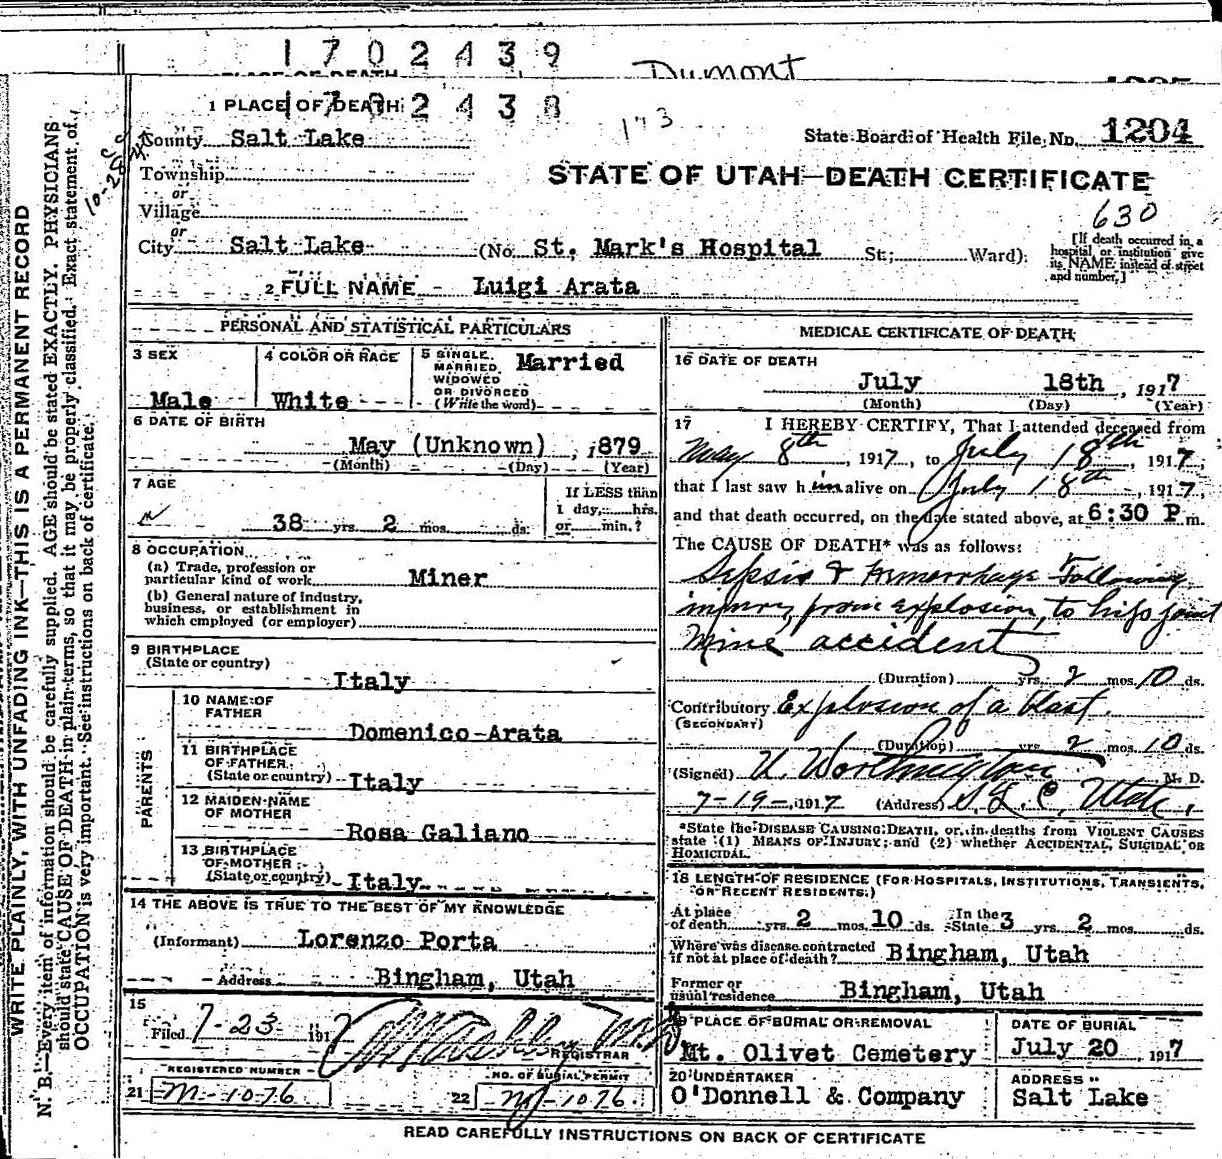 1702439
Dumont
1 PLACE OF DEATH: 1702438
173
County Salt Lake
State Board of Health File No. 1204
Township
STATE OF UTAH—DEATH CERTIFICATE
or
Village
630
or
City Salt Lake (No. St. Mark's Hospital St; Ward)
[If death occurred in a hospital or institution give its NAME instead of street and number.]
2 FULL NAME Luigi Arata
PERSONAL AND STATISTICAL PARTICULARS
3 SEX
Male
4 COLOR OR RACE
White
5 SINGLE
MARRIED
WIDOWED
OR DIVORCED
(Write the word)
Married
6 DATE OF BIRTH
May (Unknown), 1879
(Month) (Day) (Year)
7 AGE
38 yrs. 2 mos. ds.
If LESS than
1 day, hrs.
or min.?
8 OCCUPATION
(a) Trade, profession or
particular kind of work Miner
(b) General nature of industry,
business, or establishment in
which employed (or employer)
9 BIRTHPLACE
(State or country)
Italy
PARENTS
10 NAME OF
FATHER
Domenico Arata
11 BIRTHPLACE
OF FATHER
(State or country) Italy
12 MAIDEN NAME
OF MOTHER
Rosa Galiano
13 BIRTHPLACE
OF MOTHER
(State or country) Italy
14 THE ABOVE IS TRUE TO THE BEST OF MY KNOWLEDGE
(Informant) Lorenzo Porta
Address Bingham, Utah
15
Filed 7-23 1917
REGISTRAR
REGISTERED NUMBER
NO. OF BURIAL PERMIT
21 M-1076
22 M-1076
MEDICAL CERTIFICATE OF DEATH
16 DATE OF DEATH
July 18th, 1917
(Month) (Day) (Year)
17 I HEREBY CERTIFY, That I attended deceased from
May 8th, 1917, to July 18th, 1917,
that I last saw him alive on July 18th, 1917,
and that death occurred, on the date stated above, at 6:30 P.m.
The CAUSE OF DEATH* was as follows:
Sepsis & Hemorrhage Following
injury from explosion, to hip joint
Mine accident
(Duration) yrs. 2 mos. 10 ds.
Contributory Explosion of a blast.
(SECONDARY)
(Duration) yrs. 2 mos. 10 ds.
(Signed) U. Worthington M. D.
7-19-, 1917 (Address) S. L. C. Utah.
*State the DISEASE CAUSING DEATH, or, in deaths from VIOLENT CAUSES
state (1) MEANS OF INJURY; and (2) whether ACCIDENTAL, SUICIDAL OR
HOMICIDAL.
18 LENGTH OF RESIDENCE (FOR HOSPITALS, INSTITUTIONS, TRANSIENTS,
OR RECENT RESIDENTS.)
At place
of death yrs. 2 mos. 10 ds. In the State 3 yrs. 2 mos. ds.
Where was disease contracted
if not at place of death? Bingham, Utah
Former or
usual residence Bingham, Utah
19 PLACE OF BURIAL OR REMOVAL
Mt. Olivet Cemetery
DATE OF BURIAL
July 20, 1917
20 UNDERTAKER
O'Donnell & Company
ADDRESS
Salt Lake
READ CAREFULLY INSTRUCTIONS ON BACK OF CERTIFICATE
WRITE PLAINLY, WITH UNFADING INK—THIS IS A PERMANENT RECORD
N. B.—Every item of information should be carefully supplied. AGE should be stated EXACTLY. PHYSICIANS
should state CAUSE OF DEATH in plain terms, so that it may be properly classified. Exact statement of
OCCUPATION is very important. See instructions on back of certificate.